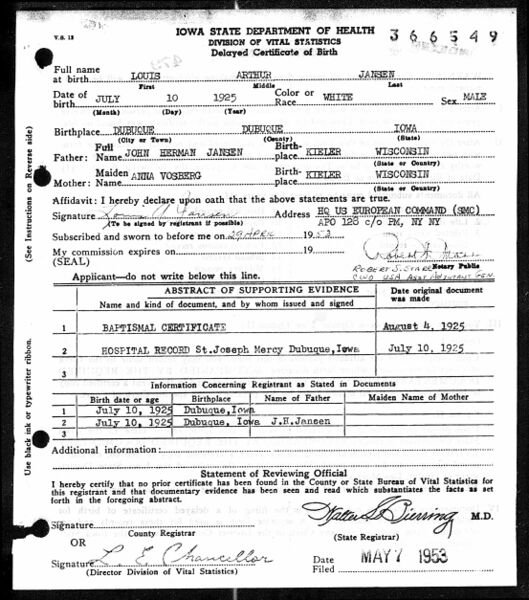 IOWA STATE DEPARTMENT OF HEALTH
V.S. 13
DIVISION OF VITAL STATISTICS
366549
Delayed Certificate of Birth
Full name at birth LOUIS ARTHUR JANSEN
First Middle Last
Date of birth JULY 10 1925 Color or Race WHITE Sex MALE
(Month) (Day) (Year)
Birthplace DUBUQUE DUBUQUE IOWA
(City or Town) (County) (State)
Father: Full Name JOHN HERMAN JANSEN Birthplace KIELER WISCONSIN
(State or Country)
Mother: Maiden Name ANNA VOSBERG Birthplace KIELER WISCONSIN
(State or Country)
Affidavit: I hereby declare upon oath that the above statements are true.
Signature Address HQ US EUROPEAN COMMAND (SMC)
(To be signed by registrant if possible) APO 128 c/o PM, NY NY
Subscribed and sworn to before me on 29 APRIL 1953
My commission expires on 19
(SEAL) Notary Public
Applicant—do not write below this line.
ABSTRACT OF SUPPORTING EVIDENCE
Name and kind of document, and by whom issued and signed
Date original document was made
1 BAPTISMAL CERTIFICATE August 4, 1925
2 HOSPITAL RECORD St.Joseph Mercy Dubuque,Iowa July 10, 1925
3
Information Concerning Registrant as Stated in Documents
Birth date or age Birthplace Name of Father Maiden Name of Mother
1 July 10, 1925 Dubuque,Iowa
2 July 10, 1925 Dubuque, Iowa J.H.Jansen
3
Additional information:
Statement of Reviewing Official
I hereby certify that no prior certificate has been found in the County or State Bureau of Vital Statistics for
this registrant and that documentary evidence has been seen and read which substantiates the facts as set
forth in the foregoing abstract.
Walter L. Bierring M.D.
Signature
County Registrar (State Registrar)
OR
Signature L. E. Chancellor
(Director Division of Vital Statistics)
Date Filed MAY 7 1953
(See Instructions on Reverse side)
Use black ink or typewriter ribbon.